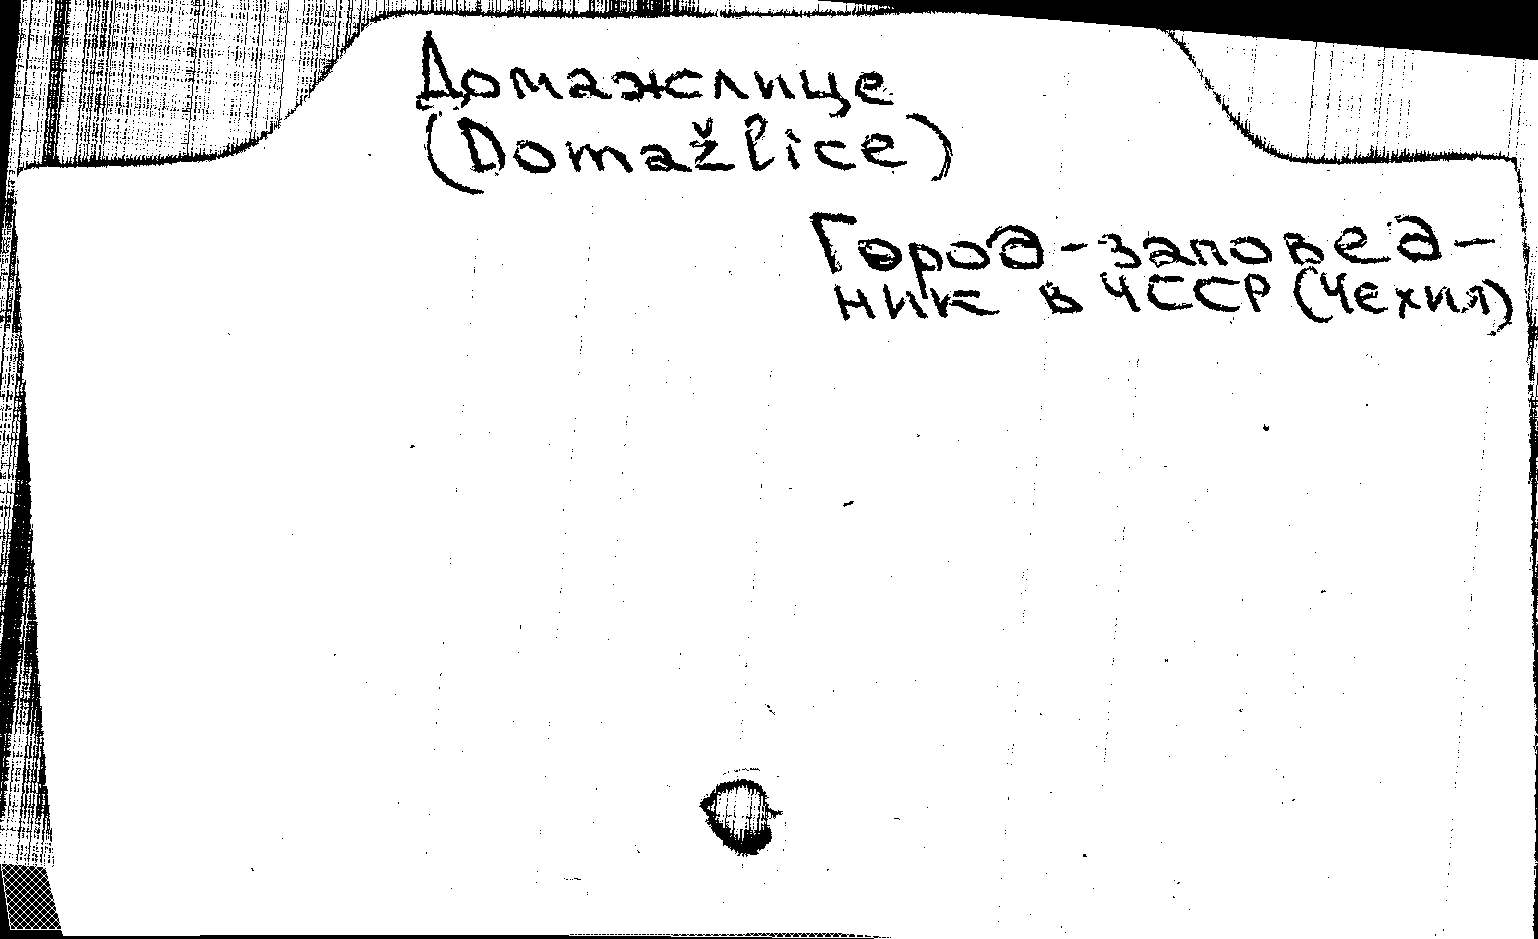 Домажлице
(Domažlice)
Город-заповед-
ник в ЧССР (Чехия)